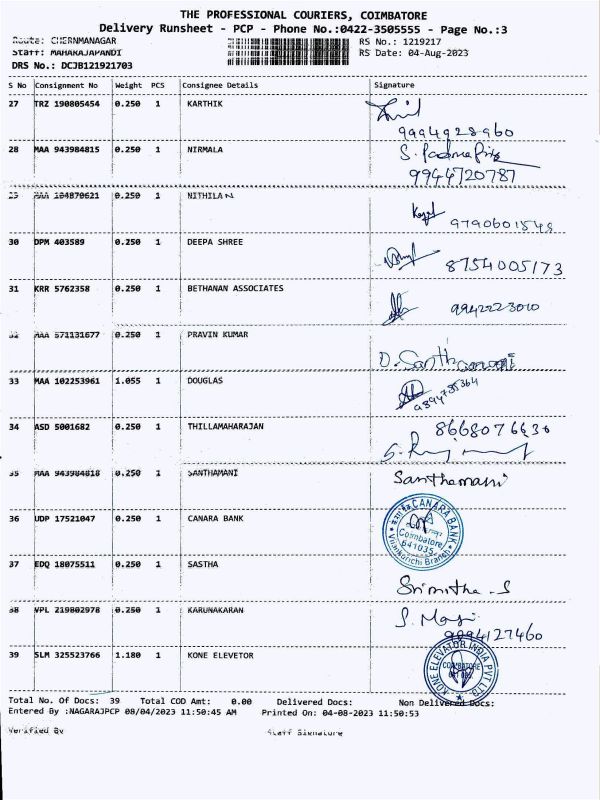 THE PROFESSIONAL COURIERS, COIMBATORE
Delivery Runsheet - PCP - Phone No.:0422-3505555 - Page No.:3
Route: CHERNMANAGAR RS No.: 1219217
Staff: MAHARAJAPANDI RS Date: 04-Aug-2023
DRS No.: DCJB121921703
S No Consignment No Weight PCS Consignee Details Signature
27 TRZ 190805454 0.250 1 KARTHIK
9994928960
28 MAA 943984815 0.250 1 NIRMALA S. Padma Priya
9944720787
29 MAA 104870621 0.250 1 NITHILAN
9790601548
30 DPM 403589 0.250 1 DEEPA SHREE
8754005173
31 KRR 5762358 0.250 1 BETHANAN ASSOCIATES 9942223010
32 MAA 571131677 0.250 1 PRAVIN KUMAR
D. Santhamani
33 MAA 102253961 1.055 1 DOUGLAS
9894785364
34 ASD 5001682 0.250 1 THILLAMAHARAJAN 8668076630
35 MAA 943984818 0.250 1 SANTHAMANI Santhamani
36 UDP 17521047 0.250 1 CANARA BANK CANARA BANK
Coimbatore
641035
Vilankurichi Branch
37 EDQ 18075511 0.250 1 SASTHA
Srimitha . S
38 VPL 219802978 0.250 1 KARUNAKARAN
9094127460
39 SLM 325523766 1.180 1 KONE ELEVETOR KONE ELEVATOR INDIA PVT LTD
COIMBATORE
Total No. Of Docs: 39 Total COD Amt: 0.00 Delivered Docs: Non Delivered Docs:
Entered By :NAGARAJPCP 08/04/2023 11:50:45 AM Printed On: 04-08-2023 11:50:53
Verified By Staff Signature